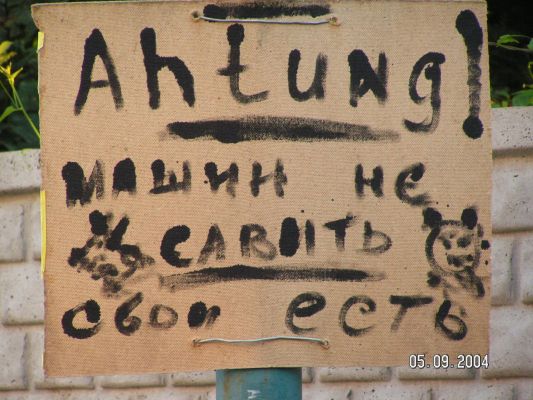 Ahtung!
машин не
савить
свои есть
05.09.2004